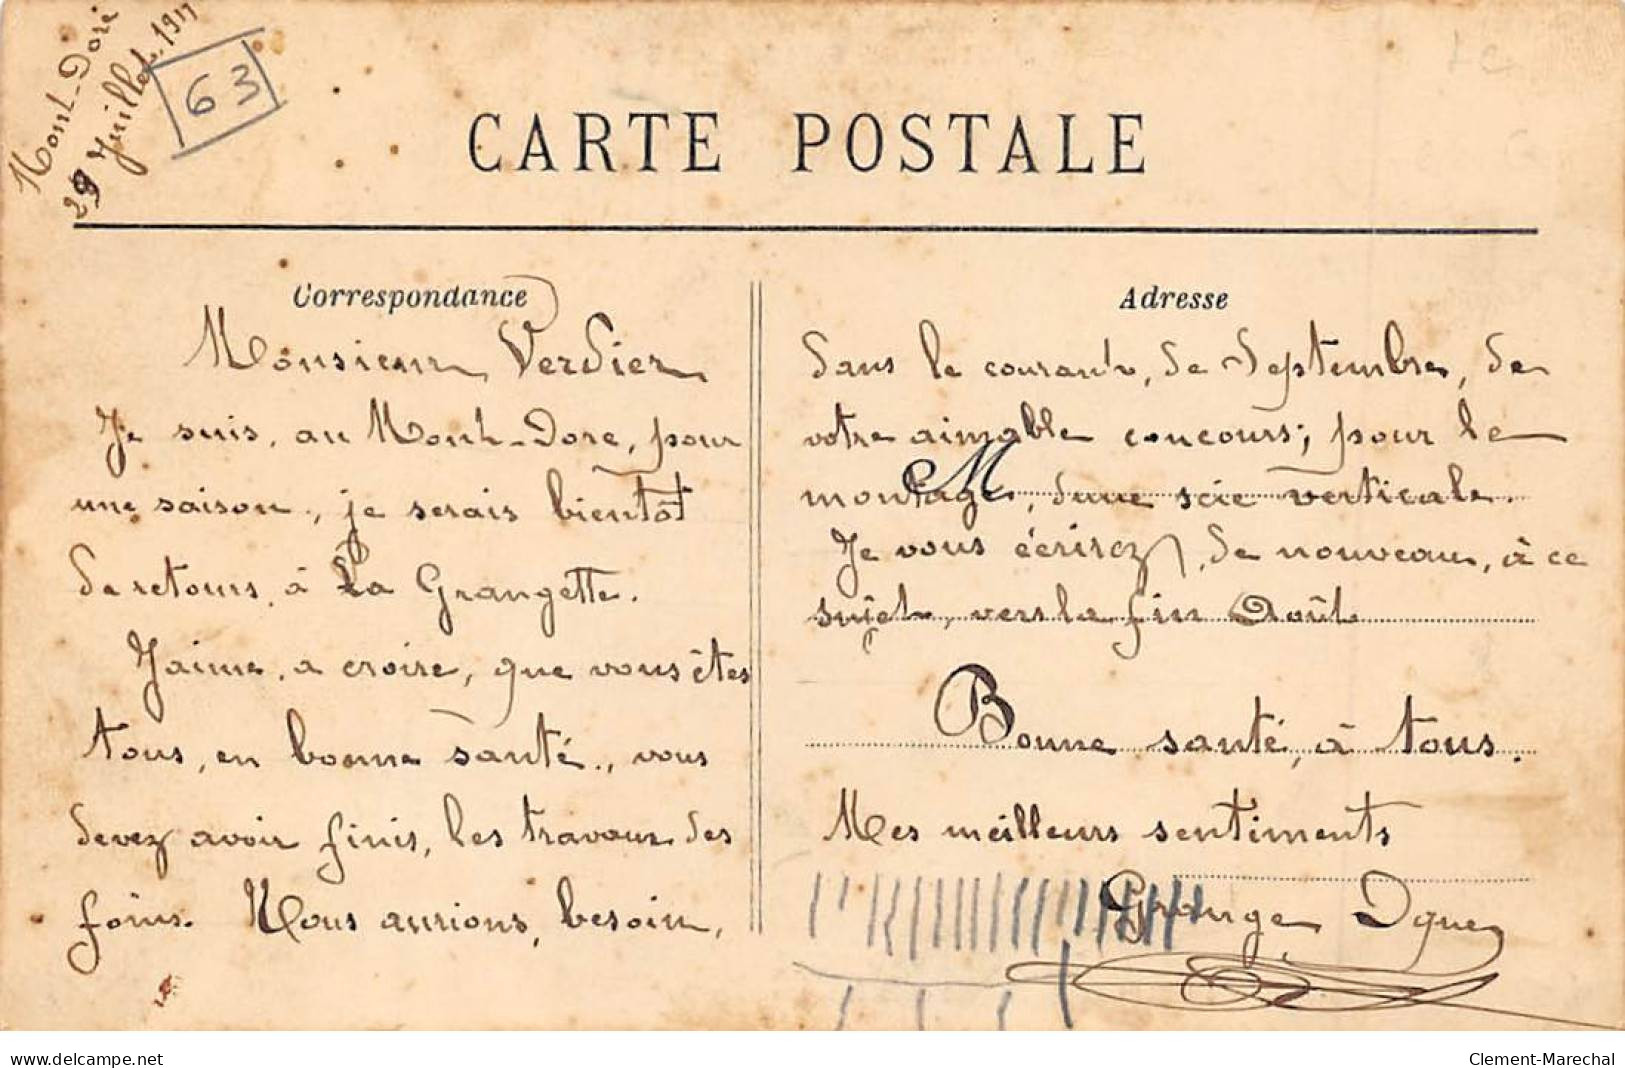 Mont-Dore
29 Juillet 1911
63
CARTE POSTALE
Correspondance
Monsieur Verdier
Je suis, au Mont-Dore, pour
une saison, je serais bientôt
de retour, à La Grangette.
J'aime, a croire, que vous êtes
tous, en bonne santé, vous
devez avoir finis, les travaux des
foins. Nous aurions, besoin,
Adresse
dans le courant, de Septembre, de
votre aimable concours; pour le
M
montage, d'une scie verticale.
Je vous écrirez, de nouveau, à ce
sujet, vers la fin Août
Bonne santé, à tous.
Mes meilleurs sentiments
Grange
www.delcampe.net
Clement-Marechal